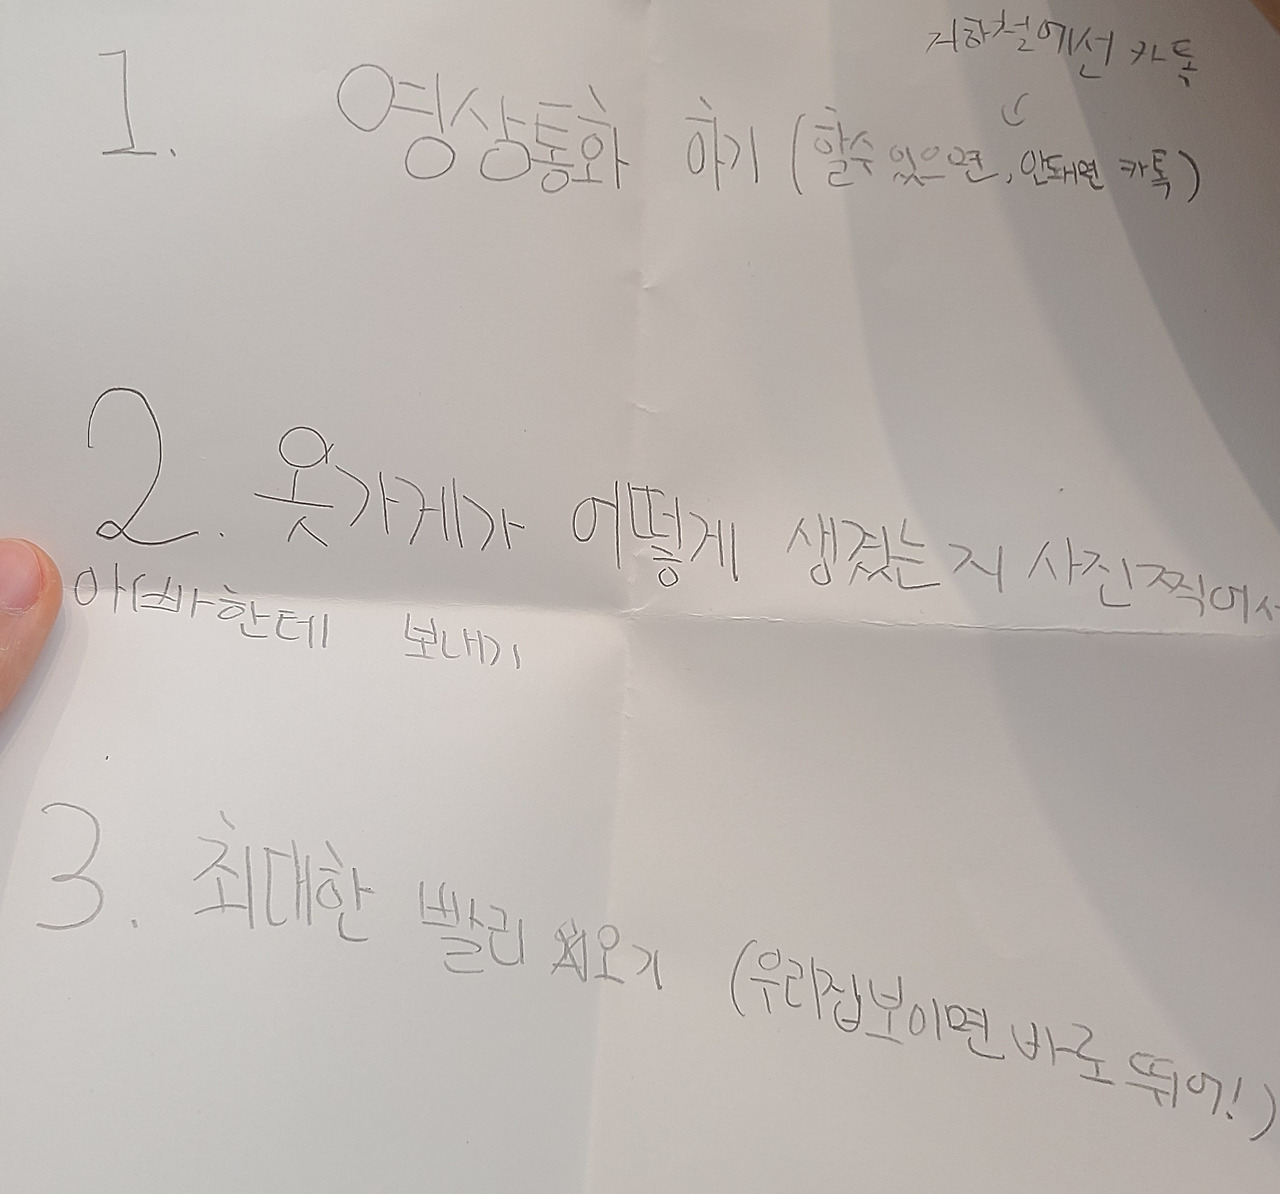 지하철에선 카톡
1. 영상통화 하기 (할수 있으면, 안돼면 카톡)
2. 옷가게가 어떻게 생겼는지 사진찍어서
아빠한테 보내기
3. 최대한 빨리 오기 (우리집보이면 바로 뛰어!)